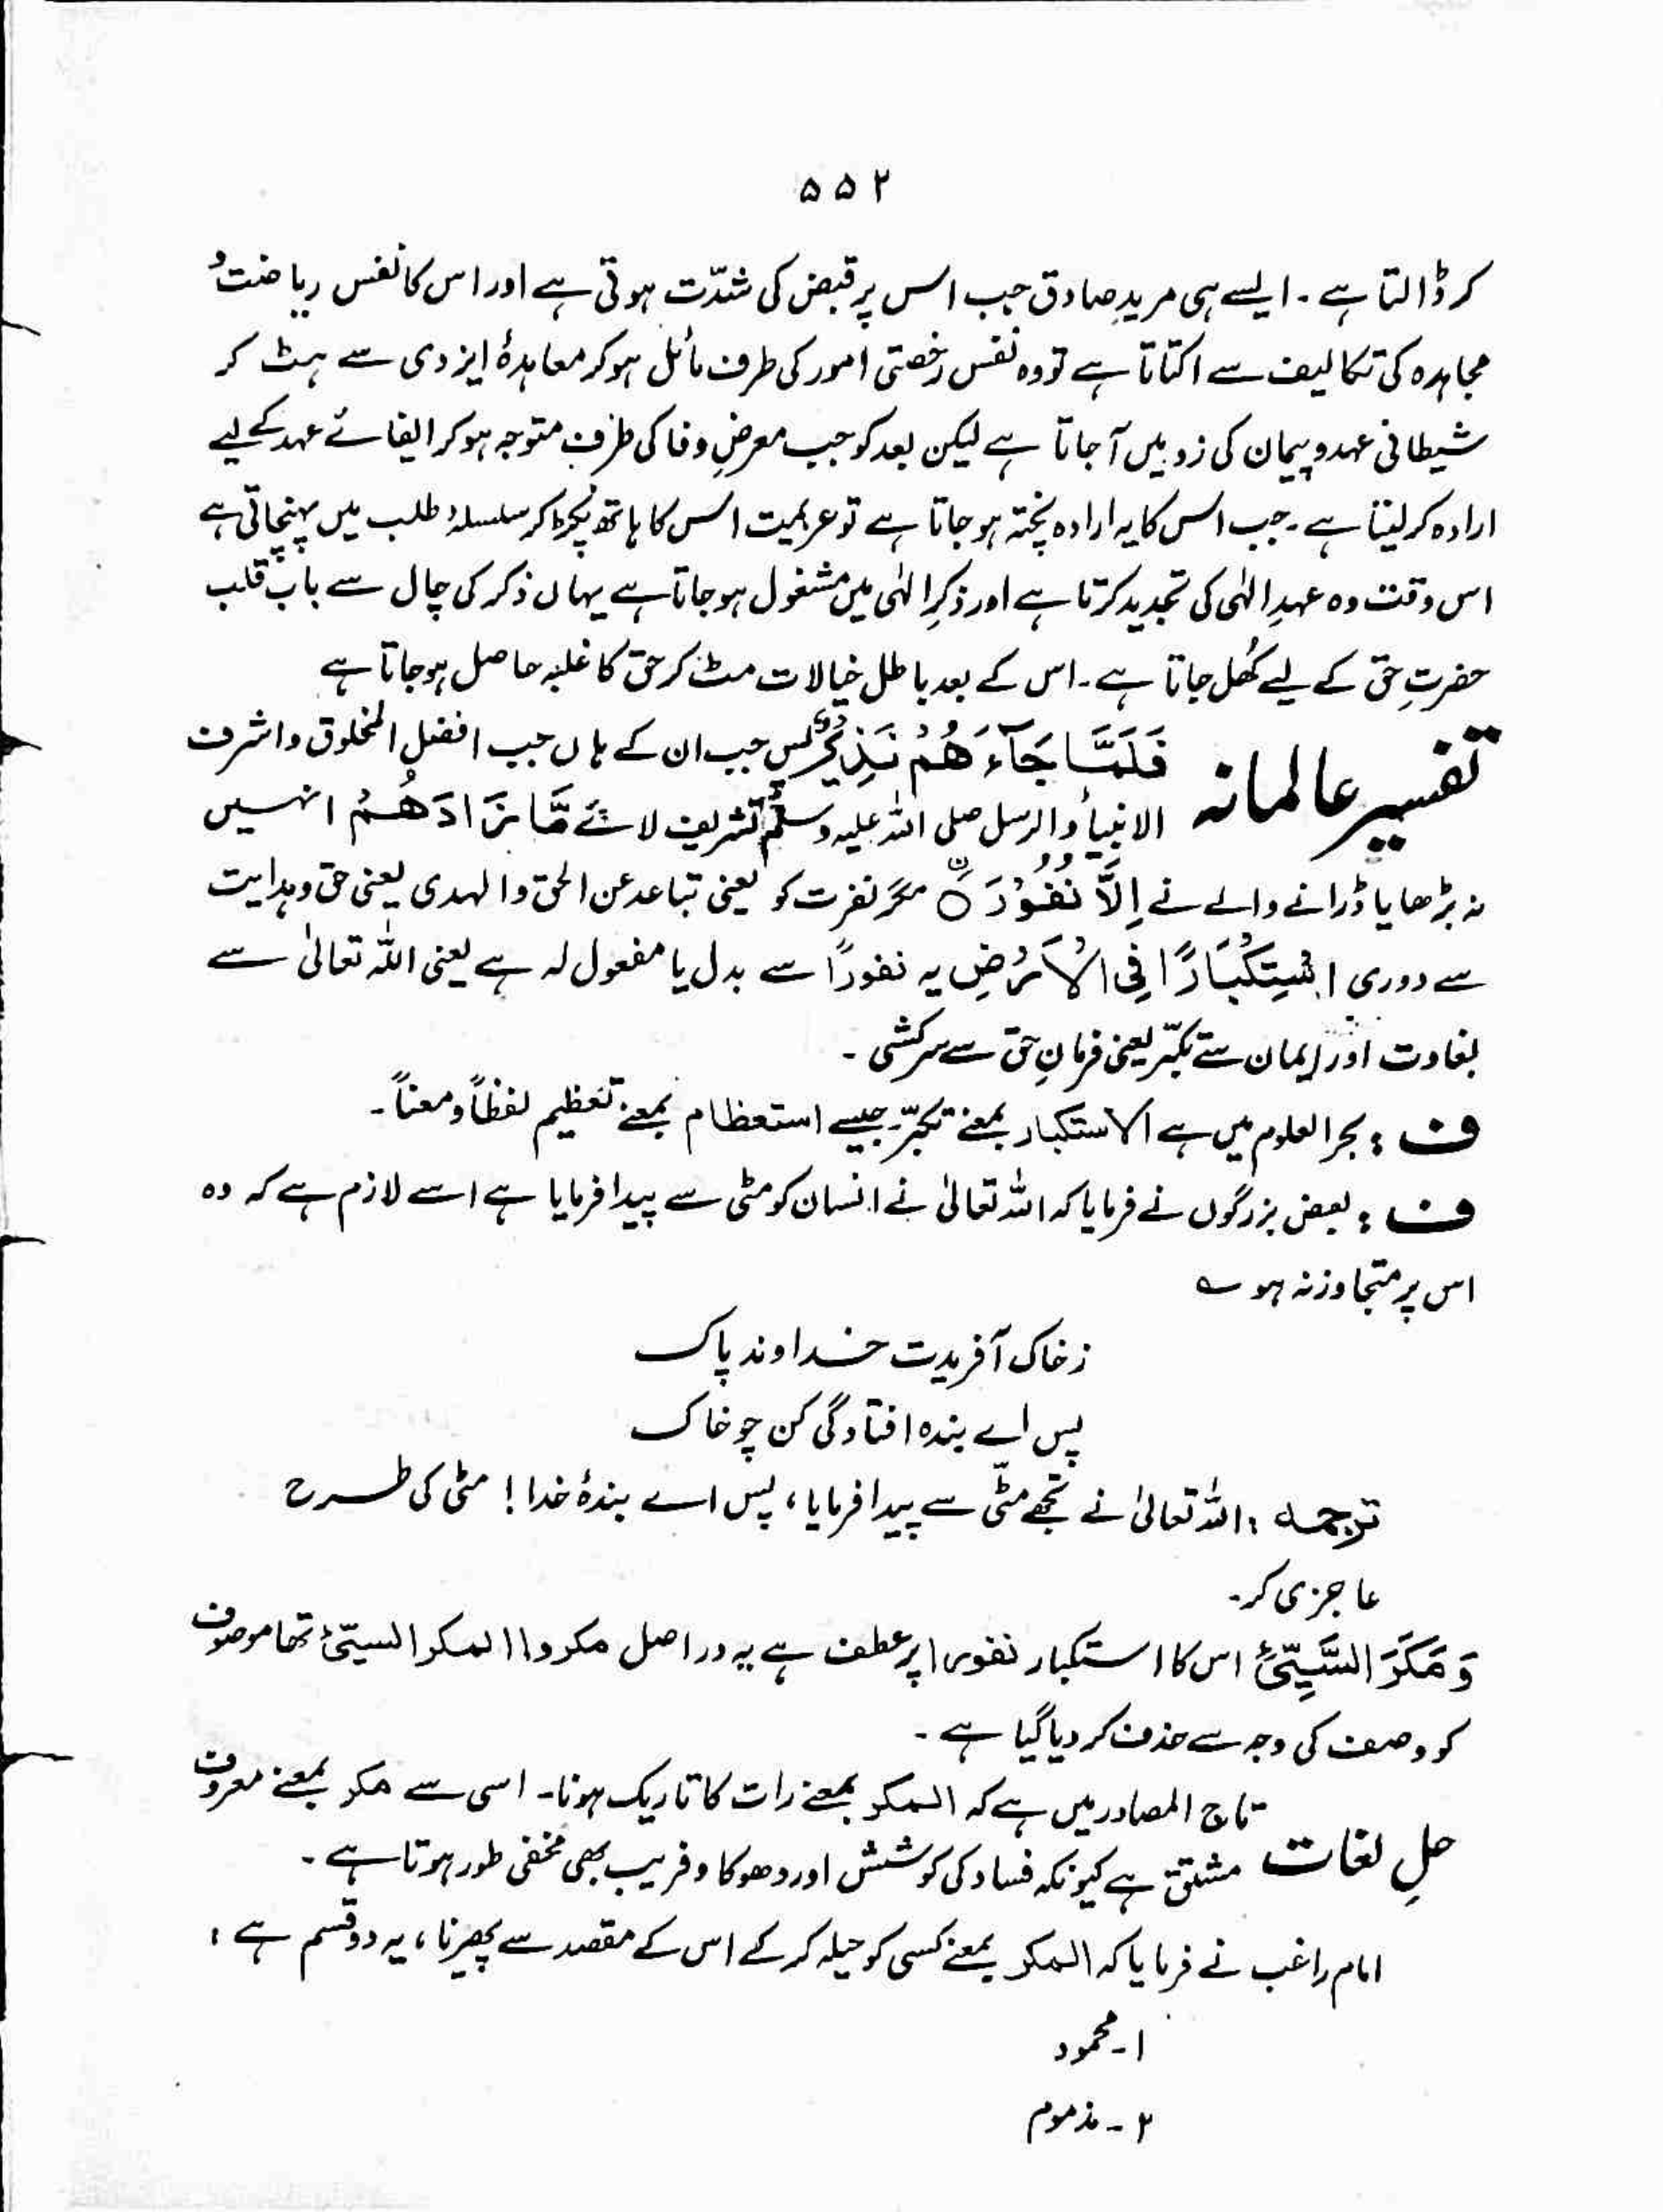 ۵۵۲
کر ڈالتا ہے ۔ ایسے ہی مریدِ صادق جب اس پر قبض کی شدّت ہوتی ہے اور اس کا نفس ریاضت و
مجاہدہ کی تکالیف سے اکتاتا ہے تو وہ نفس رخصتی امور کی طرف مائل ہو کر معاہدۂ ایزدی سے ہٹ کر
شیطانی عہد و پیمان کی زد میں آ جاتا ہے لیکن بعد کو جب معرضِ وفا کی طرف متوجہ ہو کر ایفائے عہد کے لیے
ارادہ کر لیتا ہے ۔ جب اس کا یہ ارادہ پختہ ہو جاتا ہے تو عزیمت اس کا ہاتھ پکڑ کر سلسلۂ طلب میں پہنچاتی ہے
اس وقت وہ عہدِ الٰہی کی تجدید کرتا ہے اور ذکرِ الٰہی میں مشغول ہو جاتا ہے یہاں ذکر کی چال سے بابِ قلب
حضرتِ حق کے لیے کُھل جاتا ہے ۔ اس کے بعد باطل خیالات مٹ کر حق کا غلبہ حاصل ہو جاتا ہے
تفسیر عالمانہ
فَلَمَّا جَآءَهُمْ نَذِیْرٌ پس جب ان کے ہاں جب افضل المخلوق و اشرف
الانبیاء والرسل صلی اللہ علیہ وسلم تشریف لائے مَّا زَادَهُمْ انہیں
نہ بڑھایا ڈرانے والے نے اِلَّا نُفُوْرَ ۨا مگر نفرت کو یعنی تباعد عن الحق والہدی یعنی حق و ہدایت
سے دوری اسْتِكْبَارًا فِی الْاَرْضِ یہ نفورًا سے بدل یا مفعول لہ ہے یعنی اللہ تعالیٰ سے
بغاوت اور ایمان سے تکبّر یعنی فرمانِ حق سے سرکشی ۔
ف : بحر العلوم میں ہے الاستکبار بمعنے تکبّر جیسے استعظام بمعنے تعظیم لفظاً و معناً ۔
ف : بعض بزرگوں نے فرمایا کہ اللہ تعالیٰ نے انسان کو مٹی سے پیدا فرمایا ہے اسے لازم ہے کہ وہ
اس پر متجاوز نہ ہو ؎
ز خاک آفریدت خداوند پاک
پس اے بندہ افتادگی کن چو خاک
ترجمہ : اللہ تعالیٰ نے تجھے مٹی سے پیدا فرمایا ، پس اے بندۂ خدا ! مٹی کی طرح
عاجزی کر ۔
وَ مَكْرَ السَّیِّئِ اس کا استکبار نفورا پر عطف ہے یہ دراصل مکروا المکر السیّئ تھا موصوف
کو وصف کی وجہ سے حذف کر دیا گیا ہے ۔
حلِ لغات
تاج المصادر میں ہے کہ المکر بمعنے رات کا تاریک ہونا ۔ اسی سے مکر بمعنے معروف
مشتق ہے کیونکہ فساد کی کوشش اور دھوکا و فریب بھی مخفی طور ہوتا ہے ۔
امام راغب نے فرمایا کہ المکر بمعنے کسی کو حیلہ کر کے اس کے مقصد سے پھیرنا ، یہ دو قسم ہے :
۱ ۔ محمود
۲ ۔ مذموم